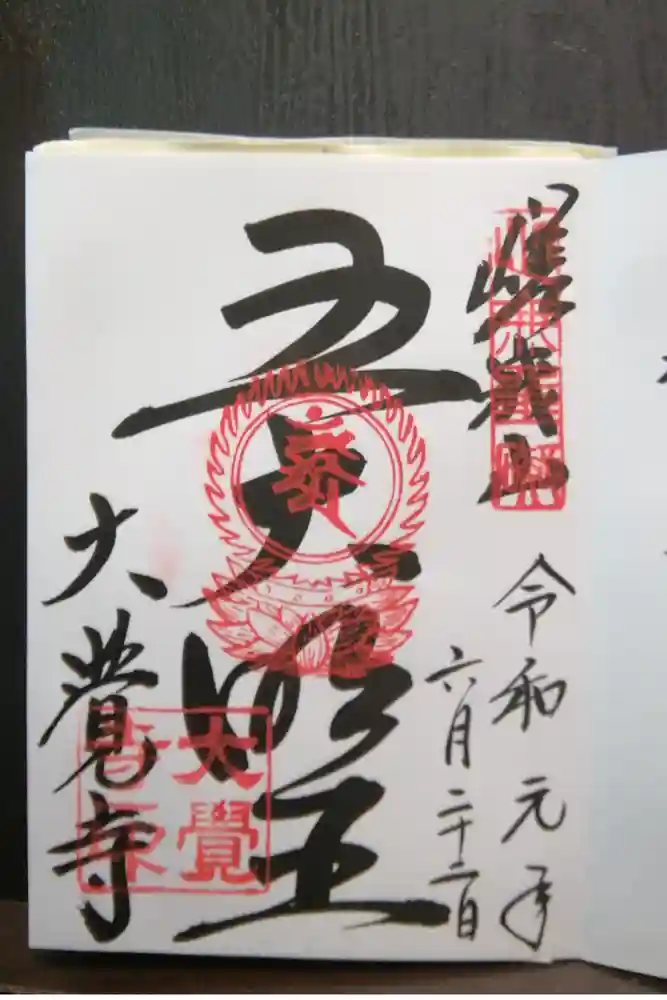 嵯峨山
令和元年
六月二十二日
五大明王
大覺寺
大覺